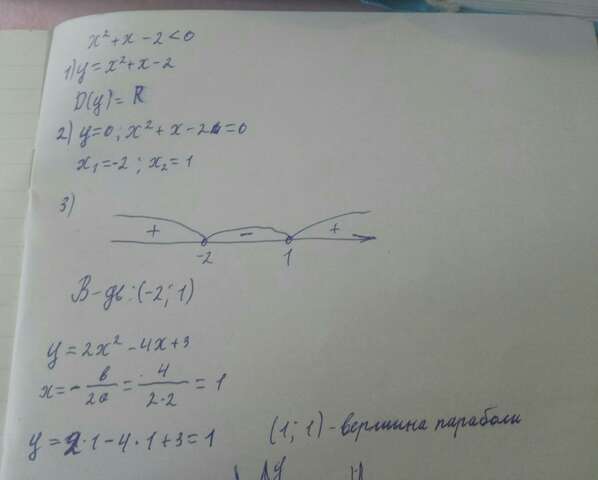 x² + x - 2 < 0
1) y = x² + x - 2
D(y) = R
2) y = 0; x² + x - 2 = 0
x₁ = -2; x₂ = 1
3)
+ - +
-2 1
В-дь: (-2; 1)
y = 2x² - 4x + 3
x = - в/2a = 4/2·2 = 1
y = 2·1 - 4·1 + 3 = 1 (1; 1) - вершина параболи
y